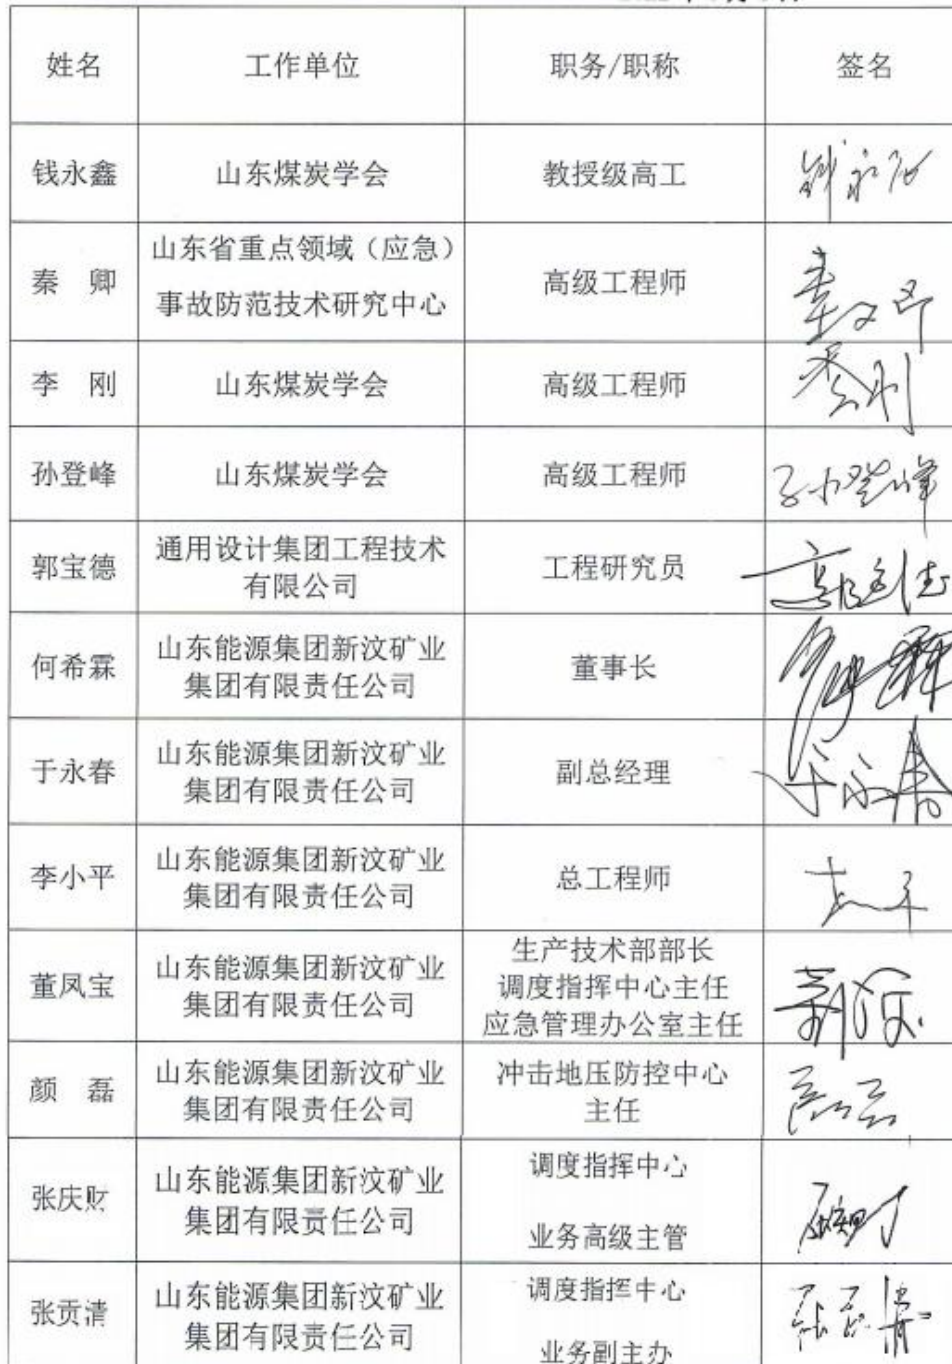 姓名 工作单位 职务/职称 签名
钱永鑫 山东煤炭学会 教授级高工
秦 卿 山东省重点领域（应急）
事故防范技术研究中心 高级工程师
李 刚 山东煤炭学会 高级工程师 李刚
孙登峰 山东煤炭学会 高级工程师 孙登峰
郭宝德 通用设计集团工程技术
有限公司 工程研究员
何希霖 山东能源集团新汶矿业
集团有限责任公司 董事长
于永春 山东能源集团新汶矿业
集团有限责任公司 副总经理 于永春
李小平 山东能源集团新汶矿业
集团有限责任公司 总工程师
董凤宝 山东能源集团新汶矿业
集团有限责任公司 生产技术部部长
调度指挥中心主任
应急管理办公室主任
颜 磊 山东能源集团新汶矿业
集团有限责任公司 冲击地压防控中心
主任
张庆财 山东能源集团新汶矿业
集团有限责任公司 调度指挥中心
业务高级主管
张贡清 山东能源集团新汶矿业
集团有限责任公司 调度指挥中心
业务副主办 张贡清